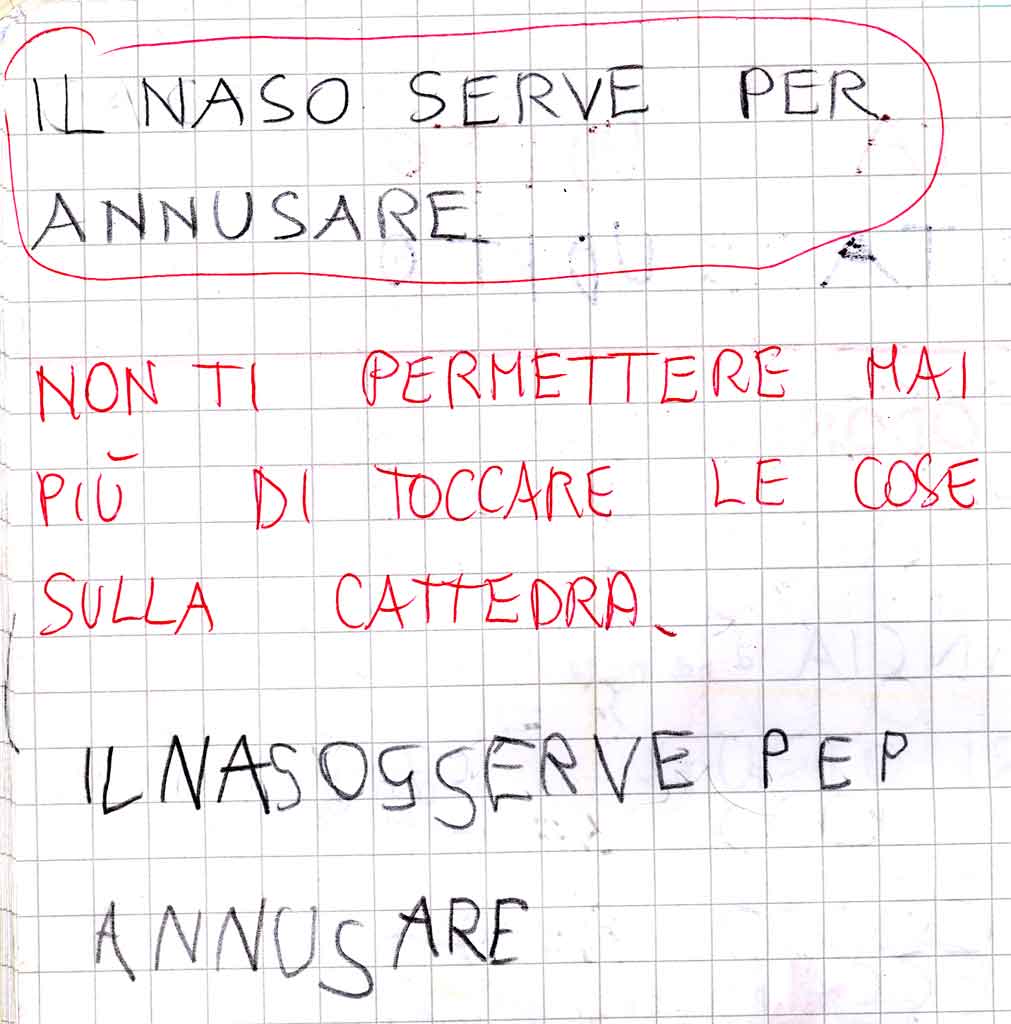 IL NASO SERVE PER
ANNUSARE
NON TI PERMETTERE MAI
PIÙ DI TOCCARE LE COSE
SULLA CATTEDRA.
IL NASOGSERVE PEP
ANNUSARE